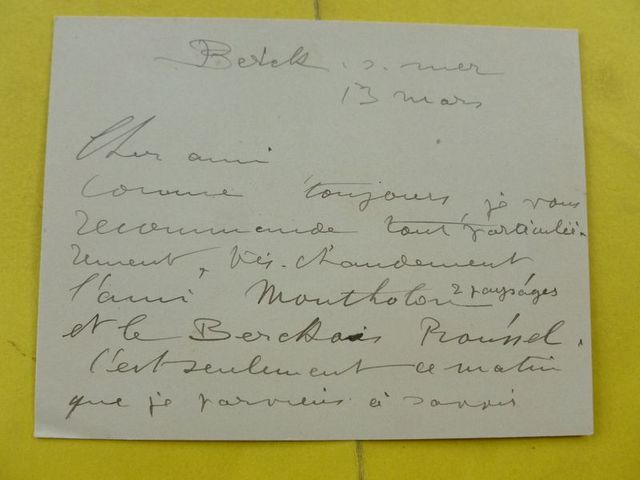 Berck. s. mer
13 mars
Cher ami
comme toujours, je vous
recommande tout particuliè-
rement & très-chaudement
l'ami Montholon 2 paysages
et le Berckois Roussel.
C'est seulement ce matin
que je parviens à savoir